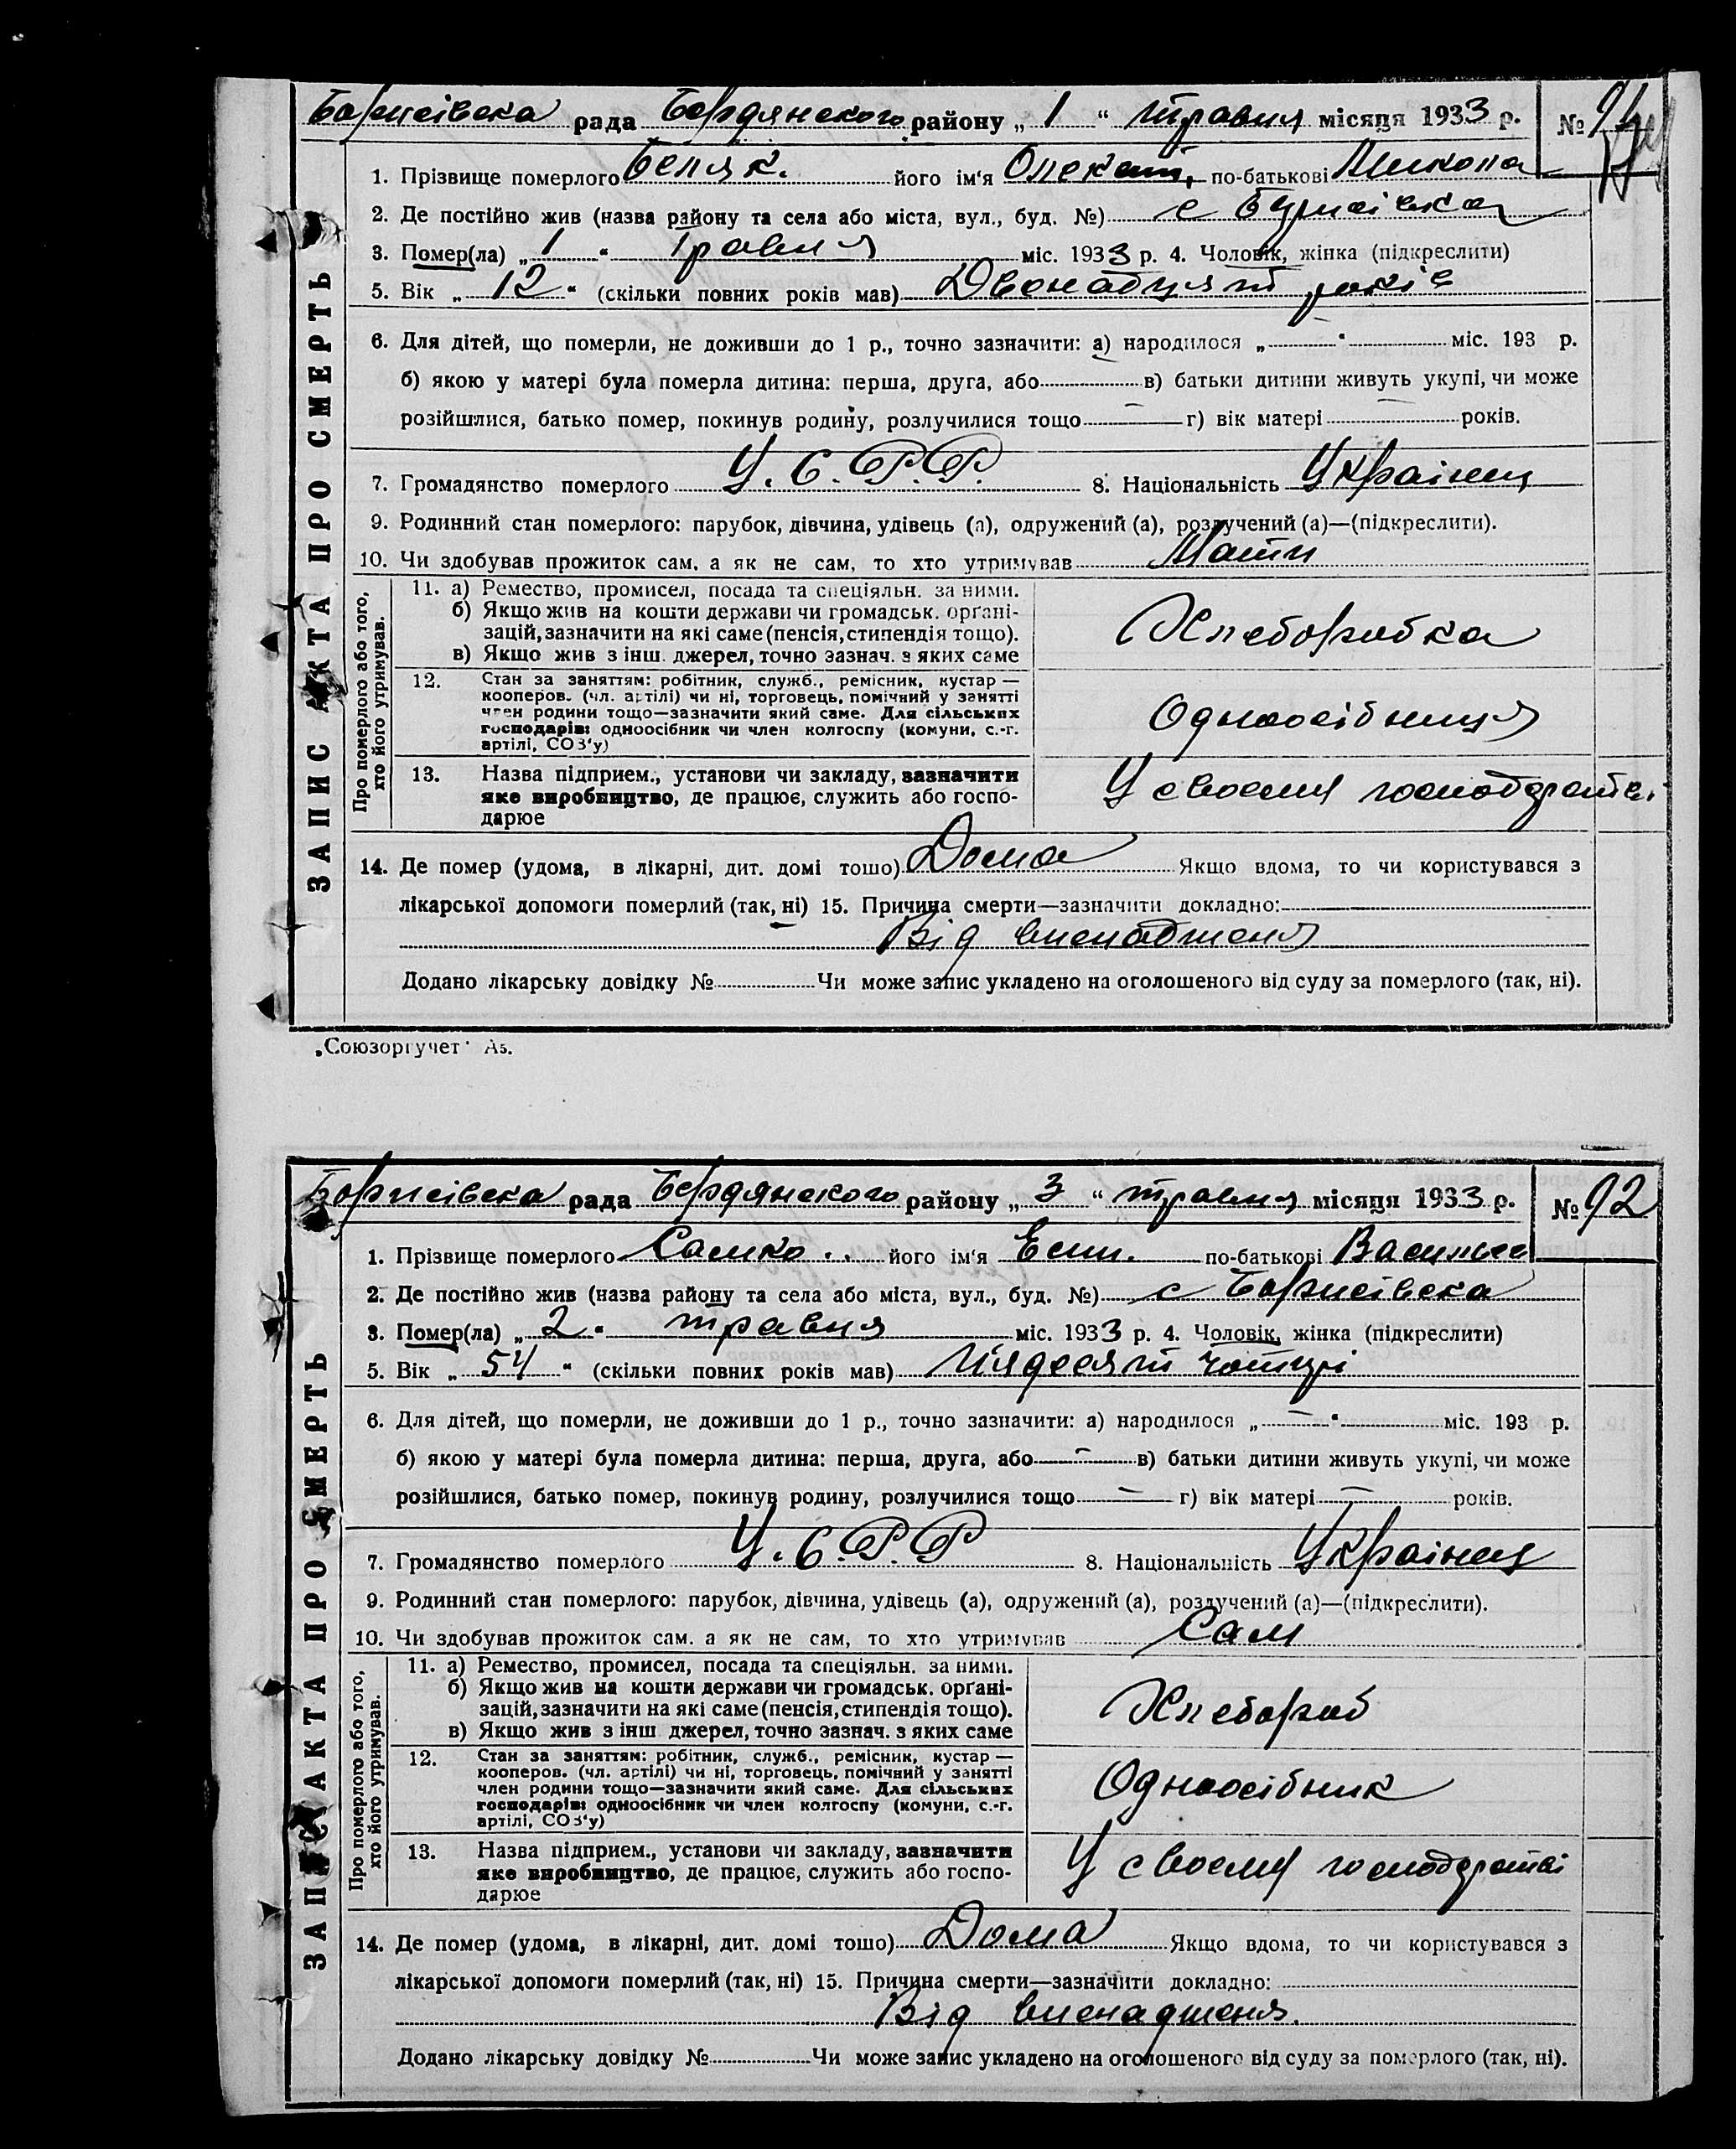 Борисівска рада Бердянского району „1“ травня місяця 1933 р. № 91
1. Прізвище померлого Беляк. його ім'я Олексій, по-батькові Микола
2. Де постійно жив (назва району та села або міста, вул., буд. №) с
3. Помер(ла) „1“ Травня міс. 1933 р. 4. Чоловік, жінка (підкреслити)
5. Вік „12“ (скільки повних років мав) Дванадцять років
6. Для дітей, що померли, не доживши до 1 р., точно зазначити: а) народилося „ “ міс. 193 р.
б) якою у матері була померла дитина: перша, друга, або в) батьки дитини живуть укупі, чи може
розійшлися, батько помер, покинув родину, розлучилися тощо г) вік матері років.
7. Громадянство померлого У.С.Р.Р. 8. Національність Українец
9. Родинний стан померлого: парубок, дівчина, удівець (а), одружений (а), розлучений (а)—(підкреслити).
10. Чи здобував прожиток сам, а як не сам, то хто утримував Мати
11. а) Ремество, промисел, посада та спеціяльн. за ними.
б) Якщо жив на кошти держави чи громадськ. орґані-
зацій, зазначити на які саме (пенсія, стипендія тощо).
в) Якщо жив з інш. джерел, точно зазнач. з яких саме
Хлеборобка
12. Стан за заняттям: робітник, служб., ремісник, кустар —
кооперов. (чл. артілі) чи ні, торговець, помічний у занятті
член родини тощо—зазначити який саме. Для сільських
господарів: одноосібник чи член колгоспу (комуни, с.-г.
артілі, СОЗ'у)
Одноосібниця
13. Назва підприєм., установи чи закладу, зазначити
яке виробництво, де працює, служить або госпо-
дарює
У своєму господарстві
14. Де помер (удома, в лікарні, дит. домі тощо) Дома Якщо вдома, то чи користувався з
лікарської допомоги померлий (так, ні) 15. Причина смерти—зазначити докладно:
Від виснадженя
Додано лікарську довідку № Чи може запис укладено на оголошеного від суду за померлого (так, ні).
ЗАПИС АКТА ПРО СМЕРТЬ
Про померлого або того,
хто його утримував.
„Союзоргучет“ А5.
Борисівска рада Бердянского району „3“ травня місяця 1933 р. № 92
1. Прізвище померлого Самко.. його ім'я по-батькові
2. Де постійно жив (назва району та села або міста, вул., буд. №) с Борисівска
3. Помер(ла) „2“ травня міс. 1933 р. 4. Чоловік, жінка (підкреслити)
5. Вік „54“ (скільки повних років мав) Пядесят чотирі
6. Для дітей, що померли, не доживши до 1 р., точно зазначити: а) народилося „ “ міс. 193 р.
б) якою у матері була померла дитина: перша, друга, або в) батьки дитини живуть укупі, чи може
розійшлися, батько помер, покинув родину, розлучилися тощо г) вік матері років.
7. Громадянство померлого У.С.Р.Р 8. Національність Українец
9. Родинний стан померлого: парубок, дівчина, удівець (а), одружений (а), розлучений (а)—(підкреслити).
10. Чи здобував прожиток сам, а як не сам, то хто утримував Сам
11. а) Ремество, промисел, посада та спеціяльн. за ними.
б) Якщо жив на кошти держави чи громадськ. орґані-
зацій, зазначити на які саме (пенсія, стипендія тощо).
в) Якщо жив з інш. джерел, точно зазнач. з яких саме
Хлебороб
12. Стан за заняттям: робітник, служб., ремісник, кустар —
кооперов. (чл. артілі) чи ні, торговець, помічний у занятті
член родини тощо—зазначити який саме. Для сільських
господарів: одноосібник чи член колгоспу (комуни, с.-г.
артілі, СОЗ'у)
Одноосібник
13. Назва підприєм., установи чи закладу, зазначити
яке виробництво, де працює, служить або госпо-
дарює
У своєму господарстві
14. Де помер (удома, в лікарні, дит. домі тощо) Дома Якщо вдома, то чи користувався з
лікарської допомоги померлий (так, ні) 15. Причина смерти—зазначити докладно:
Від виснадженя.
Додано лікарську довідку № Чи може запис укладено на оголошеного від суду за померлого (так, ні).
ЗАПИС АКТА ПРО СМЕРТЬ
Про померлого або того,
хто його утримував.